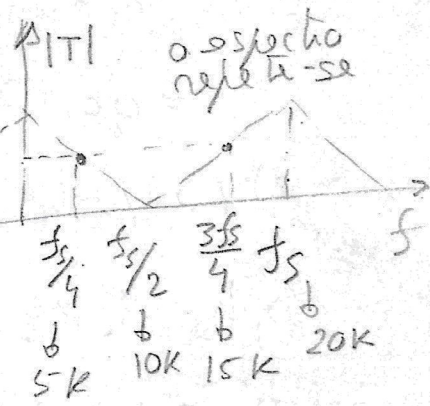 |T|
o espectro
repete-se
fs/4 fs/2 3fs/4 fs f
5K 10K 15K 20K